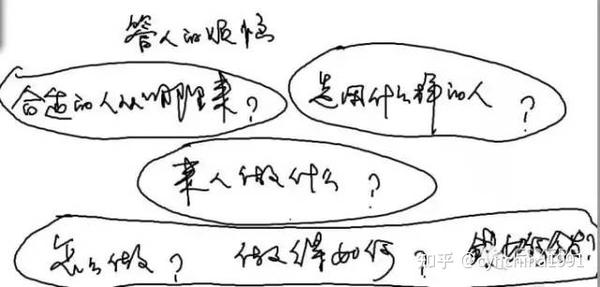 管人的烦恼
合适的人从哪里来?
用什么样的人?
来人做什么?
怎么做? 做得如何? 钱如何分?
知乎